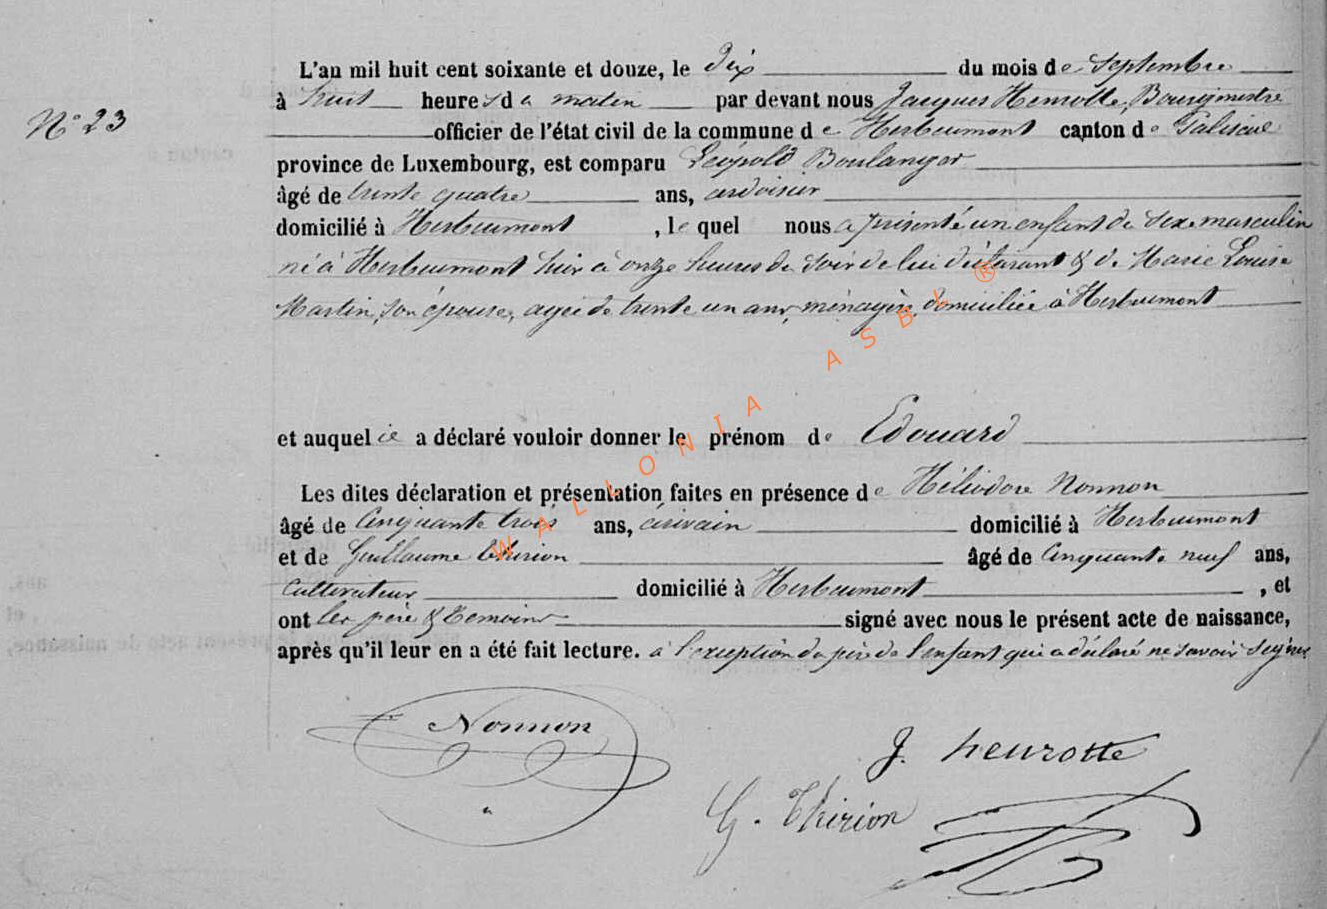 N° 23
L'an mil huit cent soixante et douze, le dix du mois de Septembre
à huit heures du matin par devant nous Jacques Henrotte, Bourgmestre
officier de l'état civil de la commune de Herbeumont canton de Paliseul
province de Luxembourg, est comparu Léopold Boulanger
âgé de trente quatre ans, ardoisier
domicilié à Herbeumont, lequel nous a présenté un enfant du sexe masculin
né à Herbeumont hier à onze heures du soir de lui déclarant & de Marie Louise
Martin, son épouse, agée de trente un ans, ménagère, domiciliée à Herbeumont
et auquel il a déclaré vouloir donner le prénom de Edouard
Les dites déclaration et présentation faites en présence de Héliodore Nonnon
âgé de Cinquante trois ans, écrivain domicilié à Herbeumont
et de Guillaume Thirion âgé de Cinquante neuf ans,
Cultivateur domicilié à Herbeumont, et
ont les père & témoins signé avec nous le présent acte de naissance,
après qu'il leur en a été fait lecture. à l'exception du père de l'enfant qui a déclaré ne savoir signer
Nonnon
J. henrotte
G. Thirion
WALLONIA ASBL ®